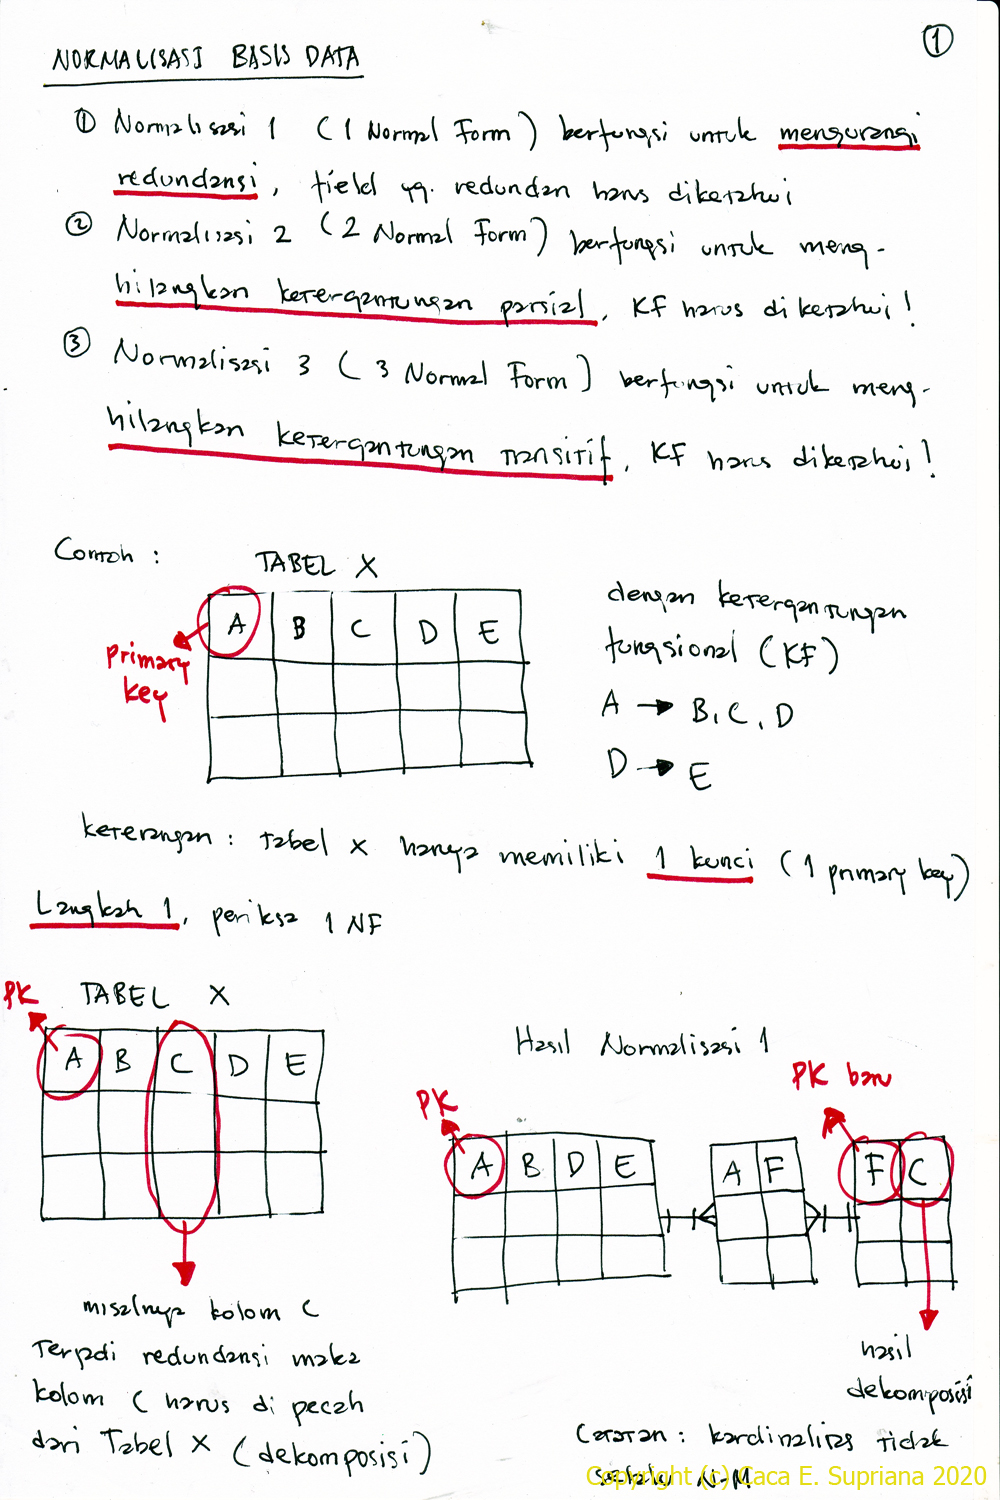 NORMALISASI BASIS DATA
①
① Normalisasi 1 (1 Normal Form) berfungsi untuk mengurangi
redundansi, field yg. redundan harus diketahui
② Normalisasi 2 (2 Normal Form) berfungsi untuk meng-
hilangkan ketergantungan parsial, KF harus diketahui!
③ Normalisasi 3 (3 Normal Form) berfungsi untuk meng-
hilangkan ketergantungan transitif, KF harus diketahui!
Contoh :
TABEL X
A B C D E
primary
key
dengan ketergantungan
fungsional (KF)
A → B, C, D
D → E
keterangan : tabel x hanya memiliki 1 kunci (1 primary key)
Langkah 1, periksa 1 NF
PK TABEL X
A B C D E
misalnya kolom C
terjadi redundansi maka
kolom C harus di pecah
dari Tabel X (dekomposisi)
Hasil Normalisasi 1
PK
PK baru
A B D E
A F
F C
hasil
dekomposisi
Catatan : kardinalitas tidak
selalu N-M
Copyright (c) Caca E. Supriana 2020